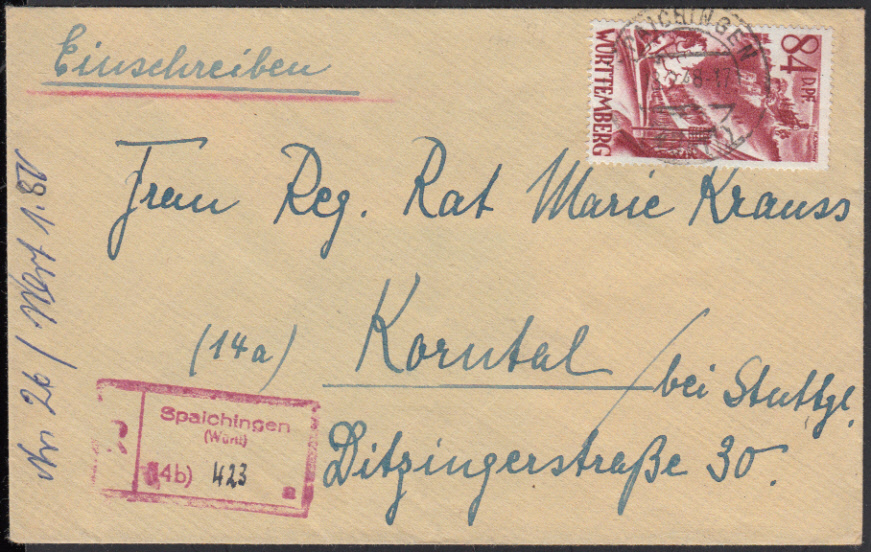 Einschreiben
SPAICHINGEN
84 D.PF
WÜRTTEMBERG
Frau Reg. Rat Marie Krauss
(14a) Korntal / bei Stuttg.
Ditzingerstraße 30
R
Spaichingen
(Württ)
(14b) 423
a
Nr 26 / Wert 1.80